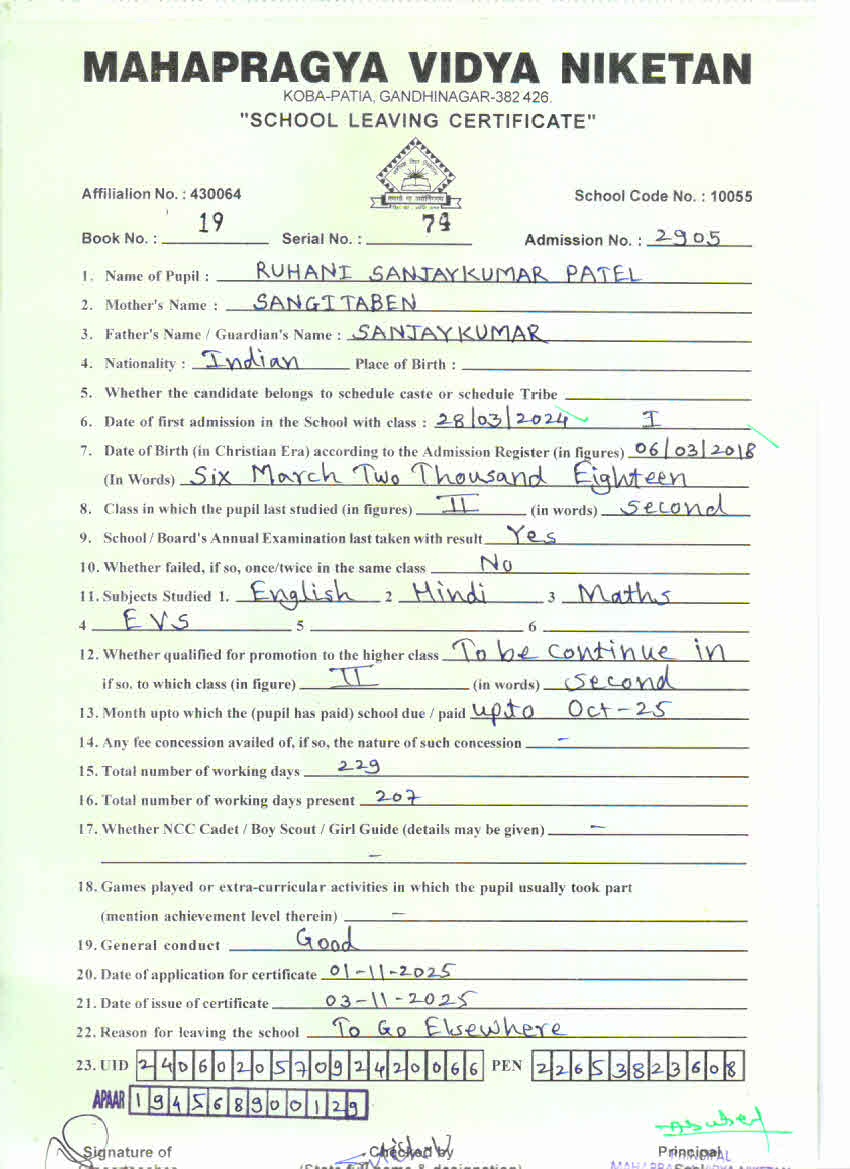 MAHAPRAGYA VIDYA NIKETAN
KOBA-PATIA, GANDHINAGAR-382 426.
"SCHOOL LEAVING CERTIFICATE"
Affilialion No. : 430064 School Code No. : 10055
Book No. : 19 Serial No. : 74 Admission No. : 2905
1. Name of Pupil : RUHANI SANJAYKUMAR PATEL
2. Mother's Name : SANGITABEN
3. Father's Name / Guardian's Name : SANJAYKUMAR
4. Nationality : Indian Place of Birth :
5. Whether the candidate belongs to schedule caste or schedule Tribe
6. Date of first admission in the School with class : 28/03/2024 I
7. Date of Birth (in Christian Era) according to the Admission Register (in figures) 06/03/2018
(In Words) Six March Two Thousand Eighteen
8. Class in which the pupil last studied (in figures) II (in words) Second
9. School / Board's Annual Examination last taken with result Yes
10. Whether failed, if so, once/twice in the same class No
11. Subjects Studied 1. English 2 Hindi 3 Maths
4 EVS 5 6
12. Whether qualified for promotion to the higher class To be continue in
if so, to which class (in figure) II (in words) Second
13. Month upto which the (pupil has paid) school due / paid upto Oct-25
14. Any fee concession availed of, if so, the nature of such concession -
15. Total number of working days 229
16. Total number of working days present 207
17. Whether NCC Cadet / Boy Scout / Girl Guide (details may be given) -
-
18. Games played or extra-curricular activities in which the pupil usually took part
(mention achievement level therein) -
19. General conduct Good
20. Date of application for certificate 01-11-2025
21. Date of issue of certificate 03-11-2025
22. Reason for leaving the school To Go Elsewhere
23. UID 240602057092420066 PEN 22653823608
APAAR 194568900129
Signature of Checked by Principal
PRINCIPAL